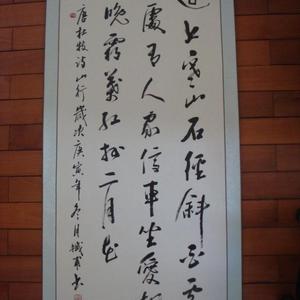 上寒山石徑斜白雲
處有人家停車坐愛楓
晚霜葉紅於二月花
唐杜牧詩山行歲次庚寅年冬月書